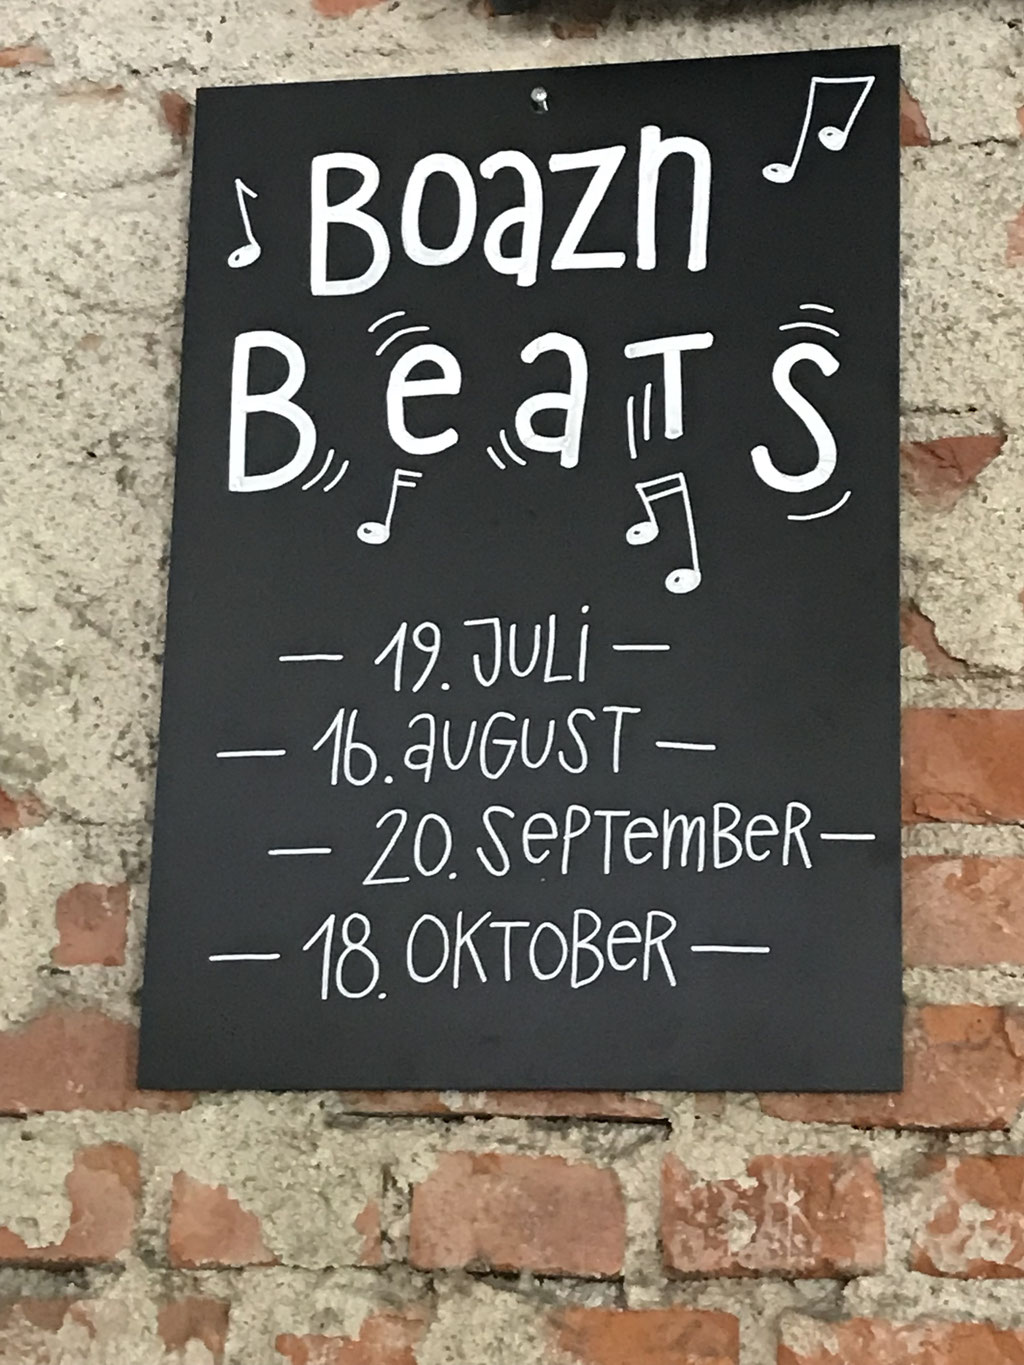 Boazn
BeaTS
— 19. JULi —
— 16. aUGUST —
— 20. SePTemBeR —
— 18. OKTOBeR —